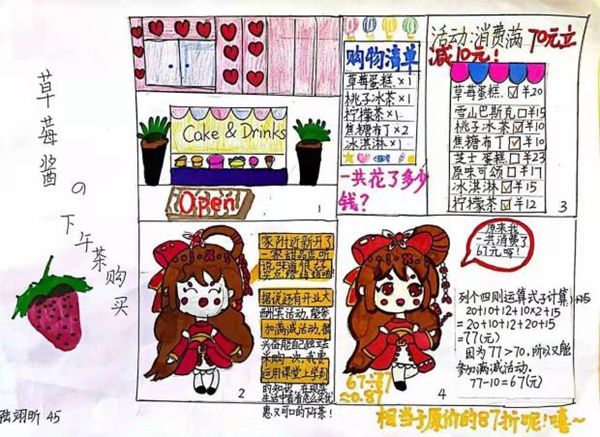 草莓酱の下午茶购买
Cake & Drinks
Open
1
购物清单
草莓蛋糕×1
桃子冰茶×1
柠檬茶×1
焦糖布丁×2
冰淇淋×1
一共花了多少
钱?
活动:消费满70元立
减10元!
草莓蛋糕 ¥20
雪山巴斯克 ¥15
桃子冰茶 ¥10
焦糖布丁 ¥10
芝士蛋糕 ¥23
原味可颂 ¥17
冰淇淋 ¥15
柠檬茶 ¥12
3
家附近新开了
一家甜品店,听
据说还有开业大
酬宾活动,能参
加满减活动,很
兴奋能自己独立去
采购一次,我要
运用课堂上学到
的知识,在现实
惠又可口的下午茶!
2
原来我
一共消费了
67元呀!
列个四则运算式子计算:
20+10+12+10×2+15
=20+10+12+20+15
=77(元)
因为77>70,所以又能
参加满减活动。
77-10=67(元)
67÷77
≈0.87
4
相当于原价的87折呢!嘻~
翊昕 45